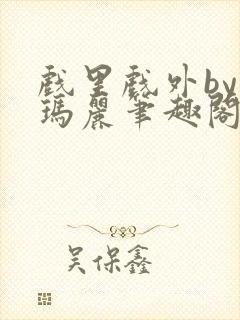 戲里戲外by
瑪麗筆趣閣
吴保鑫